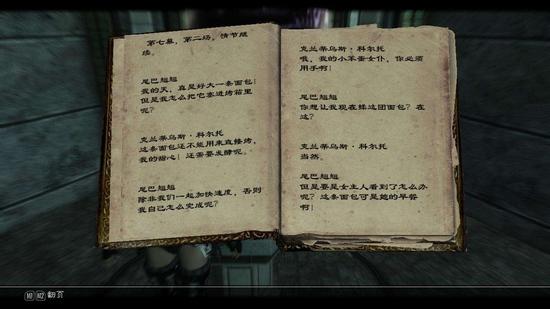 第七幕，第二场，情节继
续。
尾巴翘翘
我的天，真是好大一条面包！
但是我怎么把它塞进烤箱里
呢？
克兰蒂乌斯·科尔托
这条面包还不能用来直接烤，
我的甜心！还需要发酵呢。
尾巴翘翘
除非我们一起加快速度，否则
我自己怎么完成呢？
克兰蒂乌斯·科尔托
哦，我的小笨蛋女仆，你必须
用手啊！
尾巴翘翘
你想让我现在揉这团面包？在
这？
克兰蒂乌斯·科尔托
当然。
尾巴翘翘
但是要是女主人看到了怎么办
呢？这条面包可是她的早餐
啊！
翻页